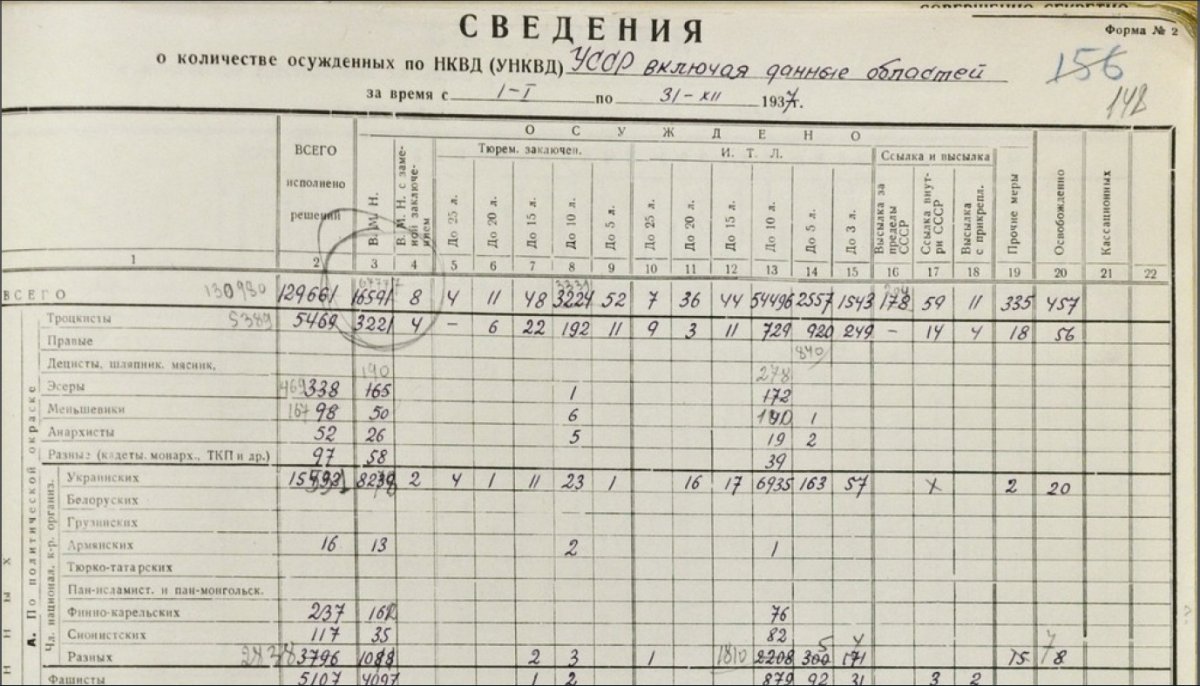 СОВЕРШЕННО СЕКРЕТНО
СВЕДЕНИЯ
Форма № 2
о количестве осужденных по НКВД (УНКВД) УССР включая данные областей
156
142
за время с I-I по 31-XII 1937г.
ОСУЖДЕНО
ВСЕГО исполнено решений
В. М. Н.
В. М. Н. с заменой заключением
Тюрем. заключен.
И. Т. Л.
Ссылка и высылка
До 25 л. До 20 л. До 15 л. До 10 л. До 5 л. До 25 л. До 20 л. До 15 л. До 10 л. До 5 л. До 3 л.
Высылка за пределы СССР
Ссылка внутри СССР
Высылка с прикрепл.
Прочие меры
Освобождено
Кассационных
1 2 3 4 5 6 7 8 9 10 11 12 13 14 15 16 17 18 19 20 21 22
ВСЕГО 130980 129661 8 4 11 48 3224 52 7 36 44 54496 2557 1543 178 59 11 335 457
Троцкисты 5389 5469 3221 4 - 6 22 192 11 9 3 11 729 920 249 - 14 4 18 56
Правые 840
Децисты, шляпник. мясник. 190 278
Эсеры 469 338 165 1 172
Меньшевики 167 98 50 6 1
Анархисты 52 26 5 19 2
Разные (кадеты. монарх., ТКП и др.) 97 58 39
А. По политической окраске
Чл. национал. к-р. организ.
Украинских 2 4 1 11 23 1 16 17 6935 163 57 2 20
Белоруских
Грузинских
Армянских 16 13 2 1
Тюрко-татарских
Пан-исламист. и пан-монгольск.
Финно-карельских 237 76
Сионистских 117 35 82
Разных 3796 2 3 1 1810 2208 300 171 8
Фашисты 5107 4097 1 2 879 92 31 3 2